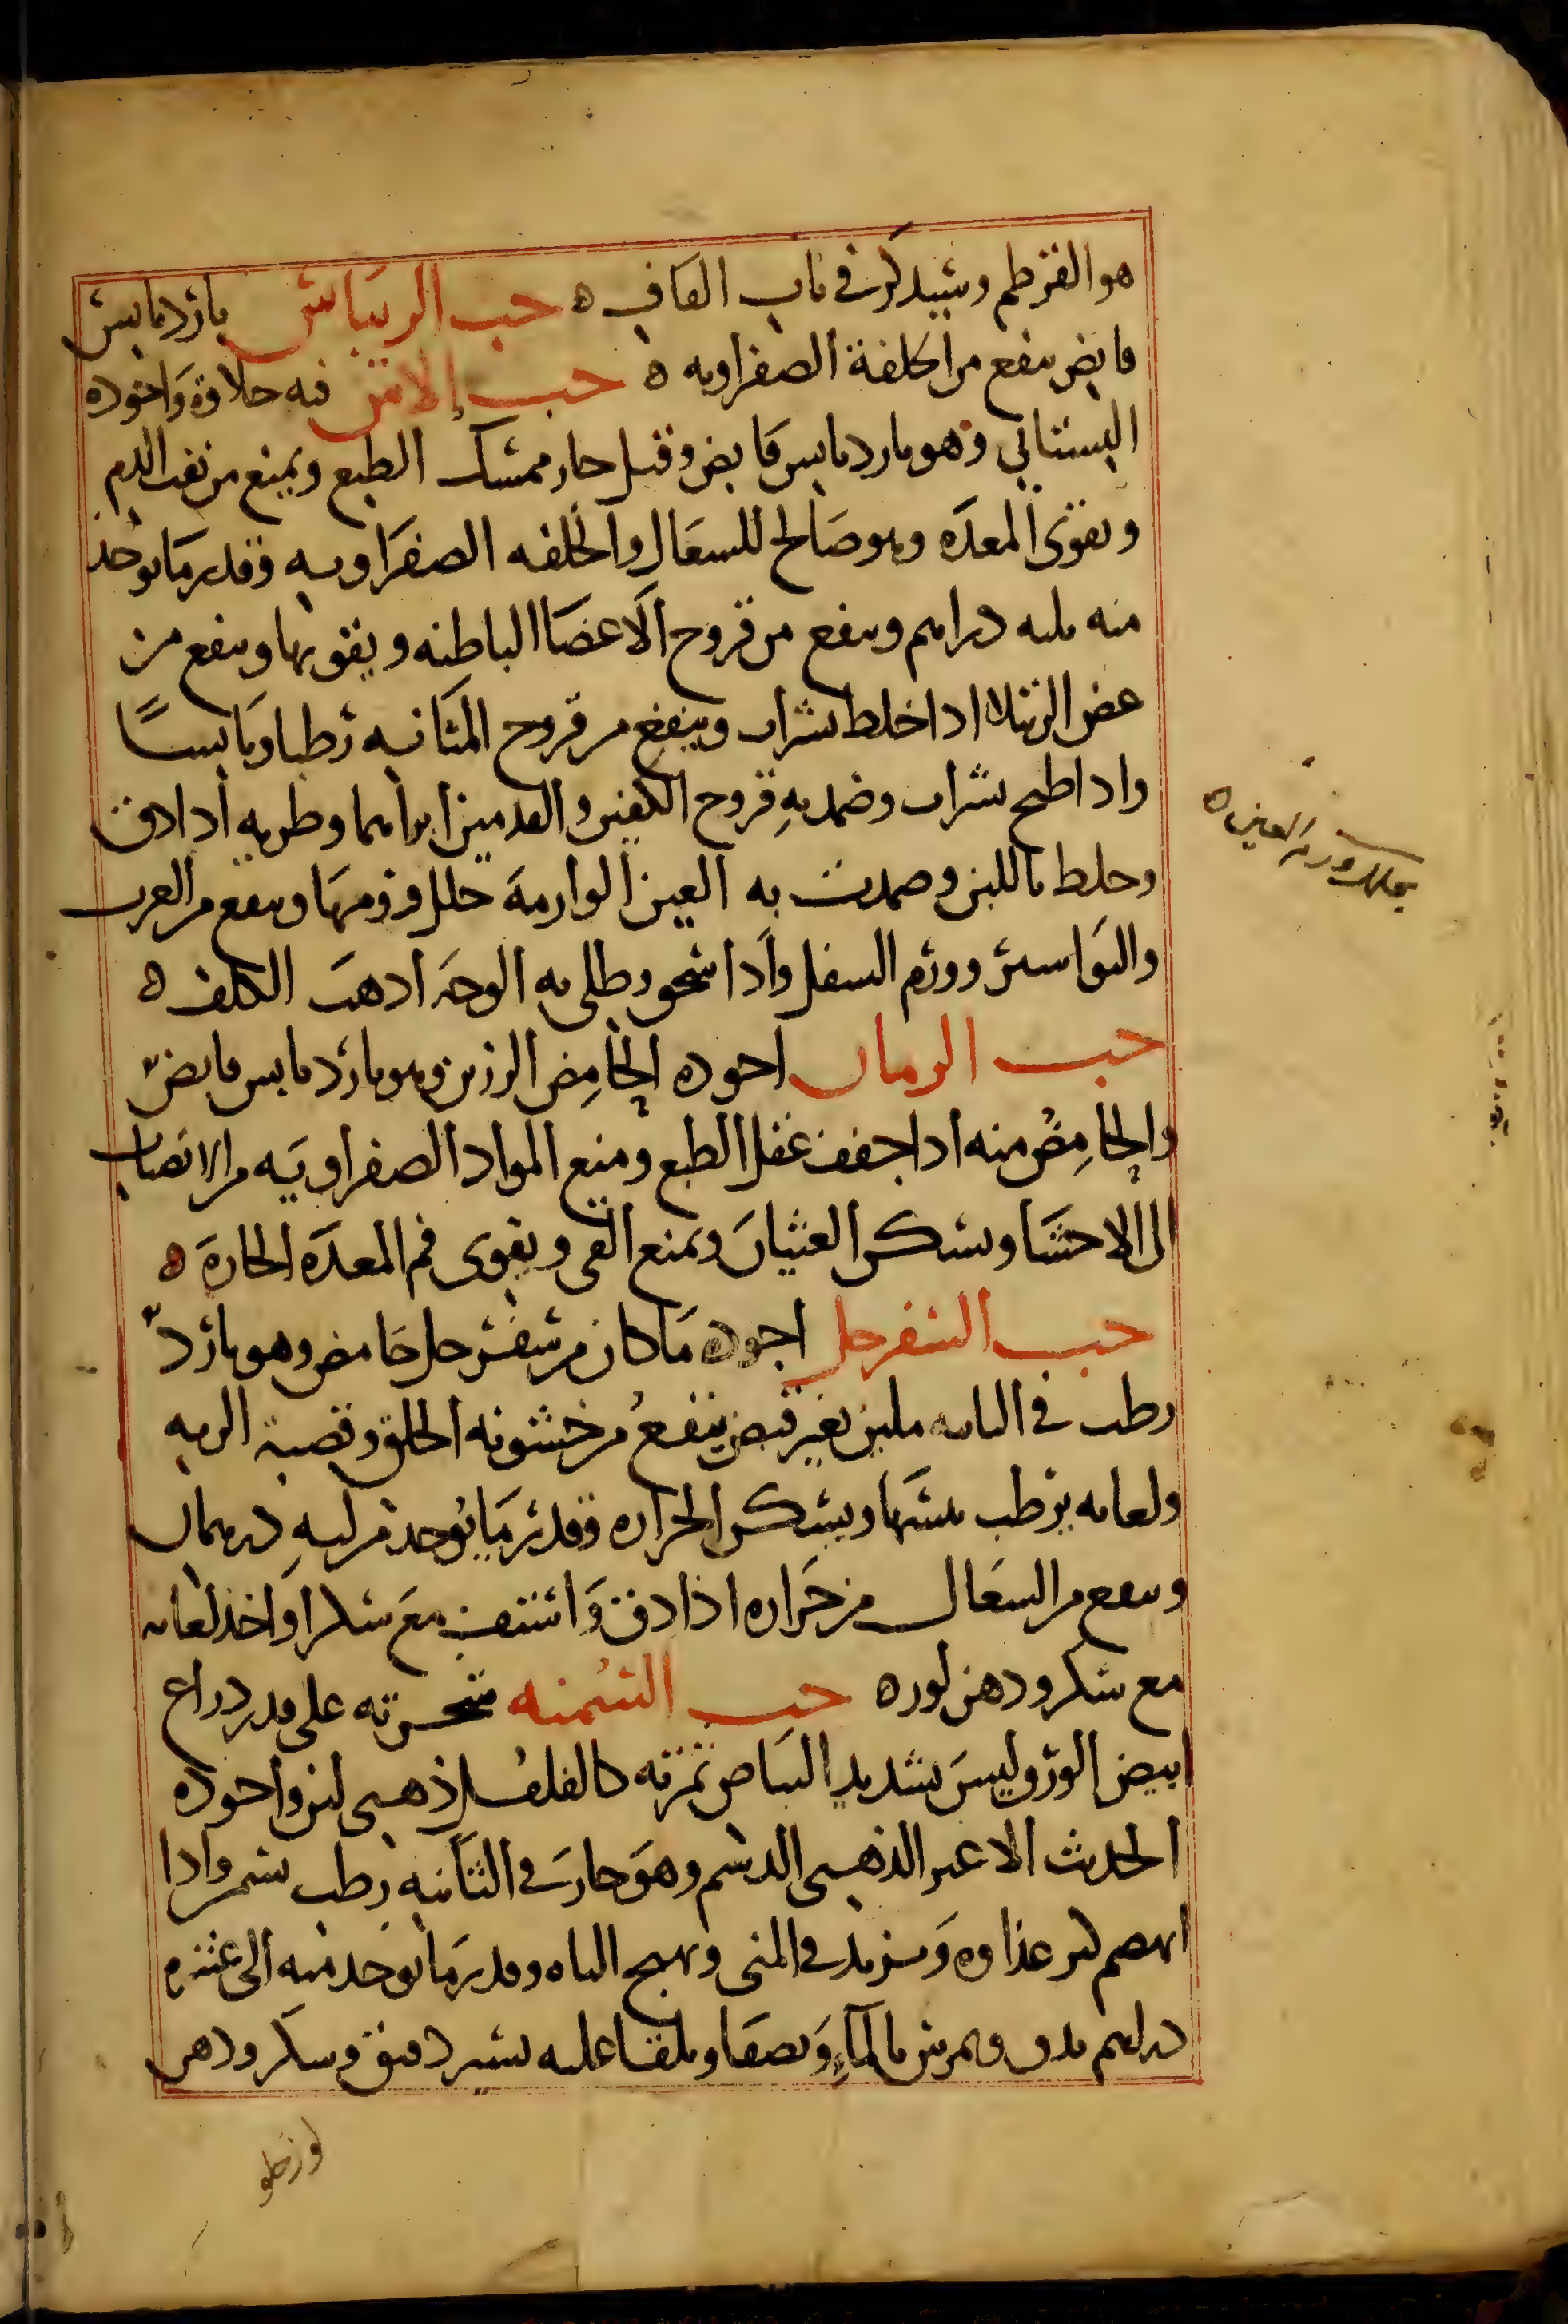 هو القرطم وسيذكر في باب القاف ه حب الريباس بارد يابس
قابض ينفع من الخلفة الصفراويه ه حب الاس فيه حلاوة واجوده
البستاني وهو بارد يابس قابض وقيل حار ممسك الطبع ويمنع من نفث الدم
ويقوى المعده وهو صالح للسعال والخلفه الصفراويه وقدر ما يوخذ
منه ثلثه دراهم وينفع من قروح الاعضا الباطنه ويقويها وينفع من
عض الرتيلا اذا خلط بشراب وينفع من قروح المثانه رطبا ويابسًا
واذا طبخ بشراب وضمد به قروح الكفين والقدمين ابراهما وطريه اذا دق
وخلط باللبن وضمدت به العين الوارمة حلل ورمها وينفع من الغرب
والبواسير وورم السفل واذا سحق وطلي به الوجه اذهب الكلف ه
حب الرمان اجوده الحامض الرزين وهو بارد يابس قابض
والحامض منه اذا جفف عقل الطبع ومنع المواد الصفراويه من الانصباب
الى الاحشا ويسكن الغثيان ويمنع القي ويقوى فم المعده الحارة ه
حب السفرجل اجوده ما كان من سفرجل حامض وهو بارد
رطب في الثانيه ملين بغير قبض ينفع من خشونه الحلق وقصبة الريه
ولعابه يرطب يبسها ويسكن الحراره وقدر ما يوخذ من لبه درهمان
وينفع من السعال من حراره اذا دق واستف مع سكر او اخذ لعابه
مع سكر ودهن لوز ه حب السمنه شجرته على قدر ذراع
ابيض الورق وليس بشديد البياض ثمرته كالفلفل ذهبي لين واجوده
الحديث الاغبر الذهبي الدسم وهو حار في الثانيه رطب يسمن واذا
انهضم كثر غذاوه ويزيد في المنى ويهيج الباه وقدر ما يوخذ منه الى عشره
دراهم يدق ويمرس بالماء ويصفا ويلقا عليه يسير دقيق وسكر ودهن
لوز حلو
يحلل ورم العين ه